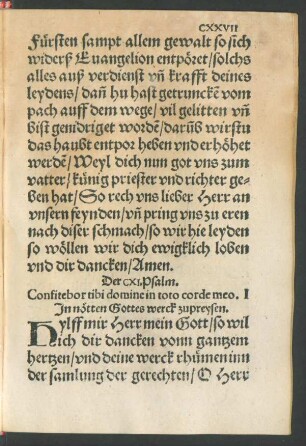 CXXVII
Fürsten sampt allem gewalt so sich
widerß Euangelion entpöret/solchs
alles auß verdienst vñ krafft deines
leydens/dañ hu hast getrunckē vom
pach auff dem wege/vil gelitten vñ
bist genidriget wordē/darũb wirstu
das haubt entpor heben vnd erhöhet
werdē/Weyl dich nun got vns zum
vatter/künig priester vnd richter ge-
ben hat/So rech vns lieber Herr an
vnsern feynden/vñ pring vns zu eren
nach diser schmach/so wir hie leyden
so wöllen wir dich ewigklich loben
vnd dir dancken/Amen.
Der CXI. Psalm.
Confitebor tibi domine in toto corde meo. I
Jn nötten Gottes werck zupreysen.
Hylff mir Herr mein Gott/so wil
Jch dir dancken vonn gantzem
hertzen/vnd deine werck rhümen inn
der samlung der gerechten/O Herr